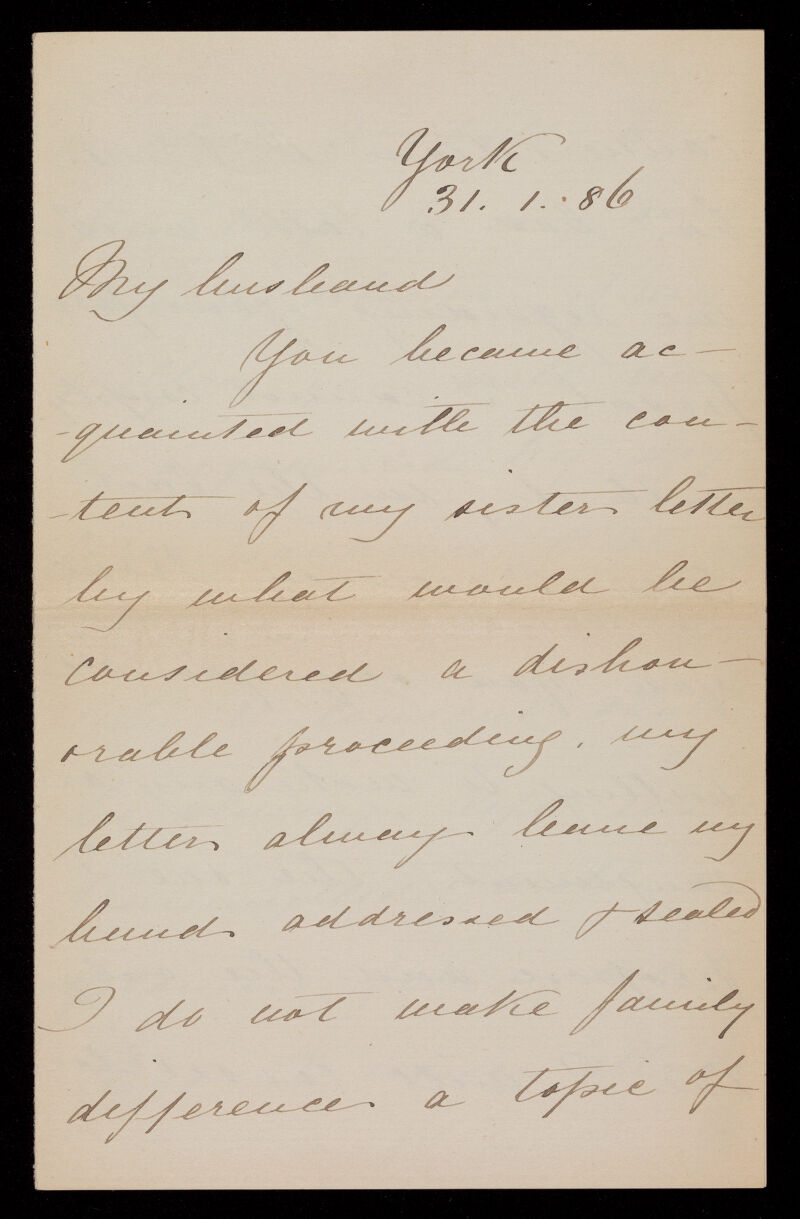 York
31. 1. 86
My husband
You became ac-
-quainted with the con-
-tents of my sisters letter
by what would be
considered a dishon-
orable proceeding. my
letters always leave my
hands addressed & sealed
I do not make family
differences a topic of